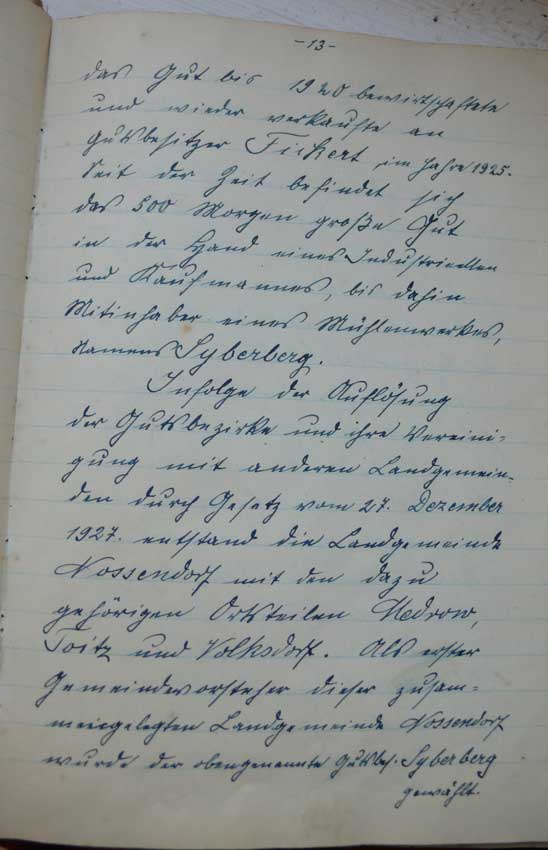 -13-
das Gut bis 1920 bewirtschaftete
und wieder verkaufte an
Gutsbesitzer Fickert, im Jahre 1925.
Seit der Zeit befindet sich
das 500 Morgen große Gut
in der Hand eines Industriellen
und Kaufmannes, bis dahin
Mitinhaber eines Mühlenwerkes,
namens Syberberg.
Infolge der Auflösung
der Gutsbezirke und ihre Vereini-
gung mit anderen Landgemein-
den durch Gesetz vom 27. Dezember
1927. entstand die Landgemeinde
Nossendorf mit den dazu
gehörigen Ortsteilen Medrow,
Toitz und Volksdorf. Als erster
Gemeindevorsteher dieser zusam-
mengelegten Landgemeinde Nossendorf
wurde der obengenannte Gutsbes. Syberberg
gewählt.